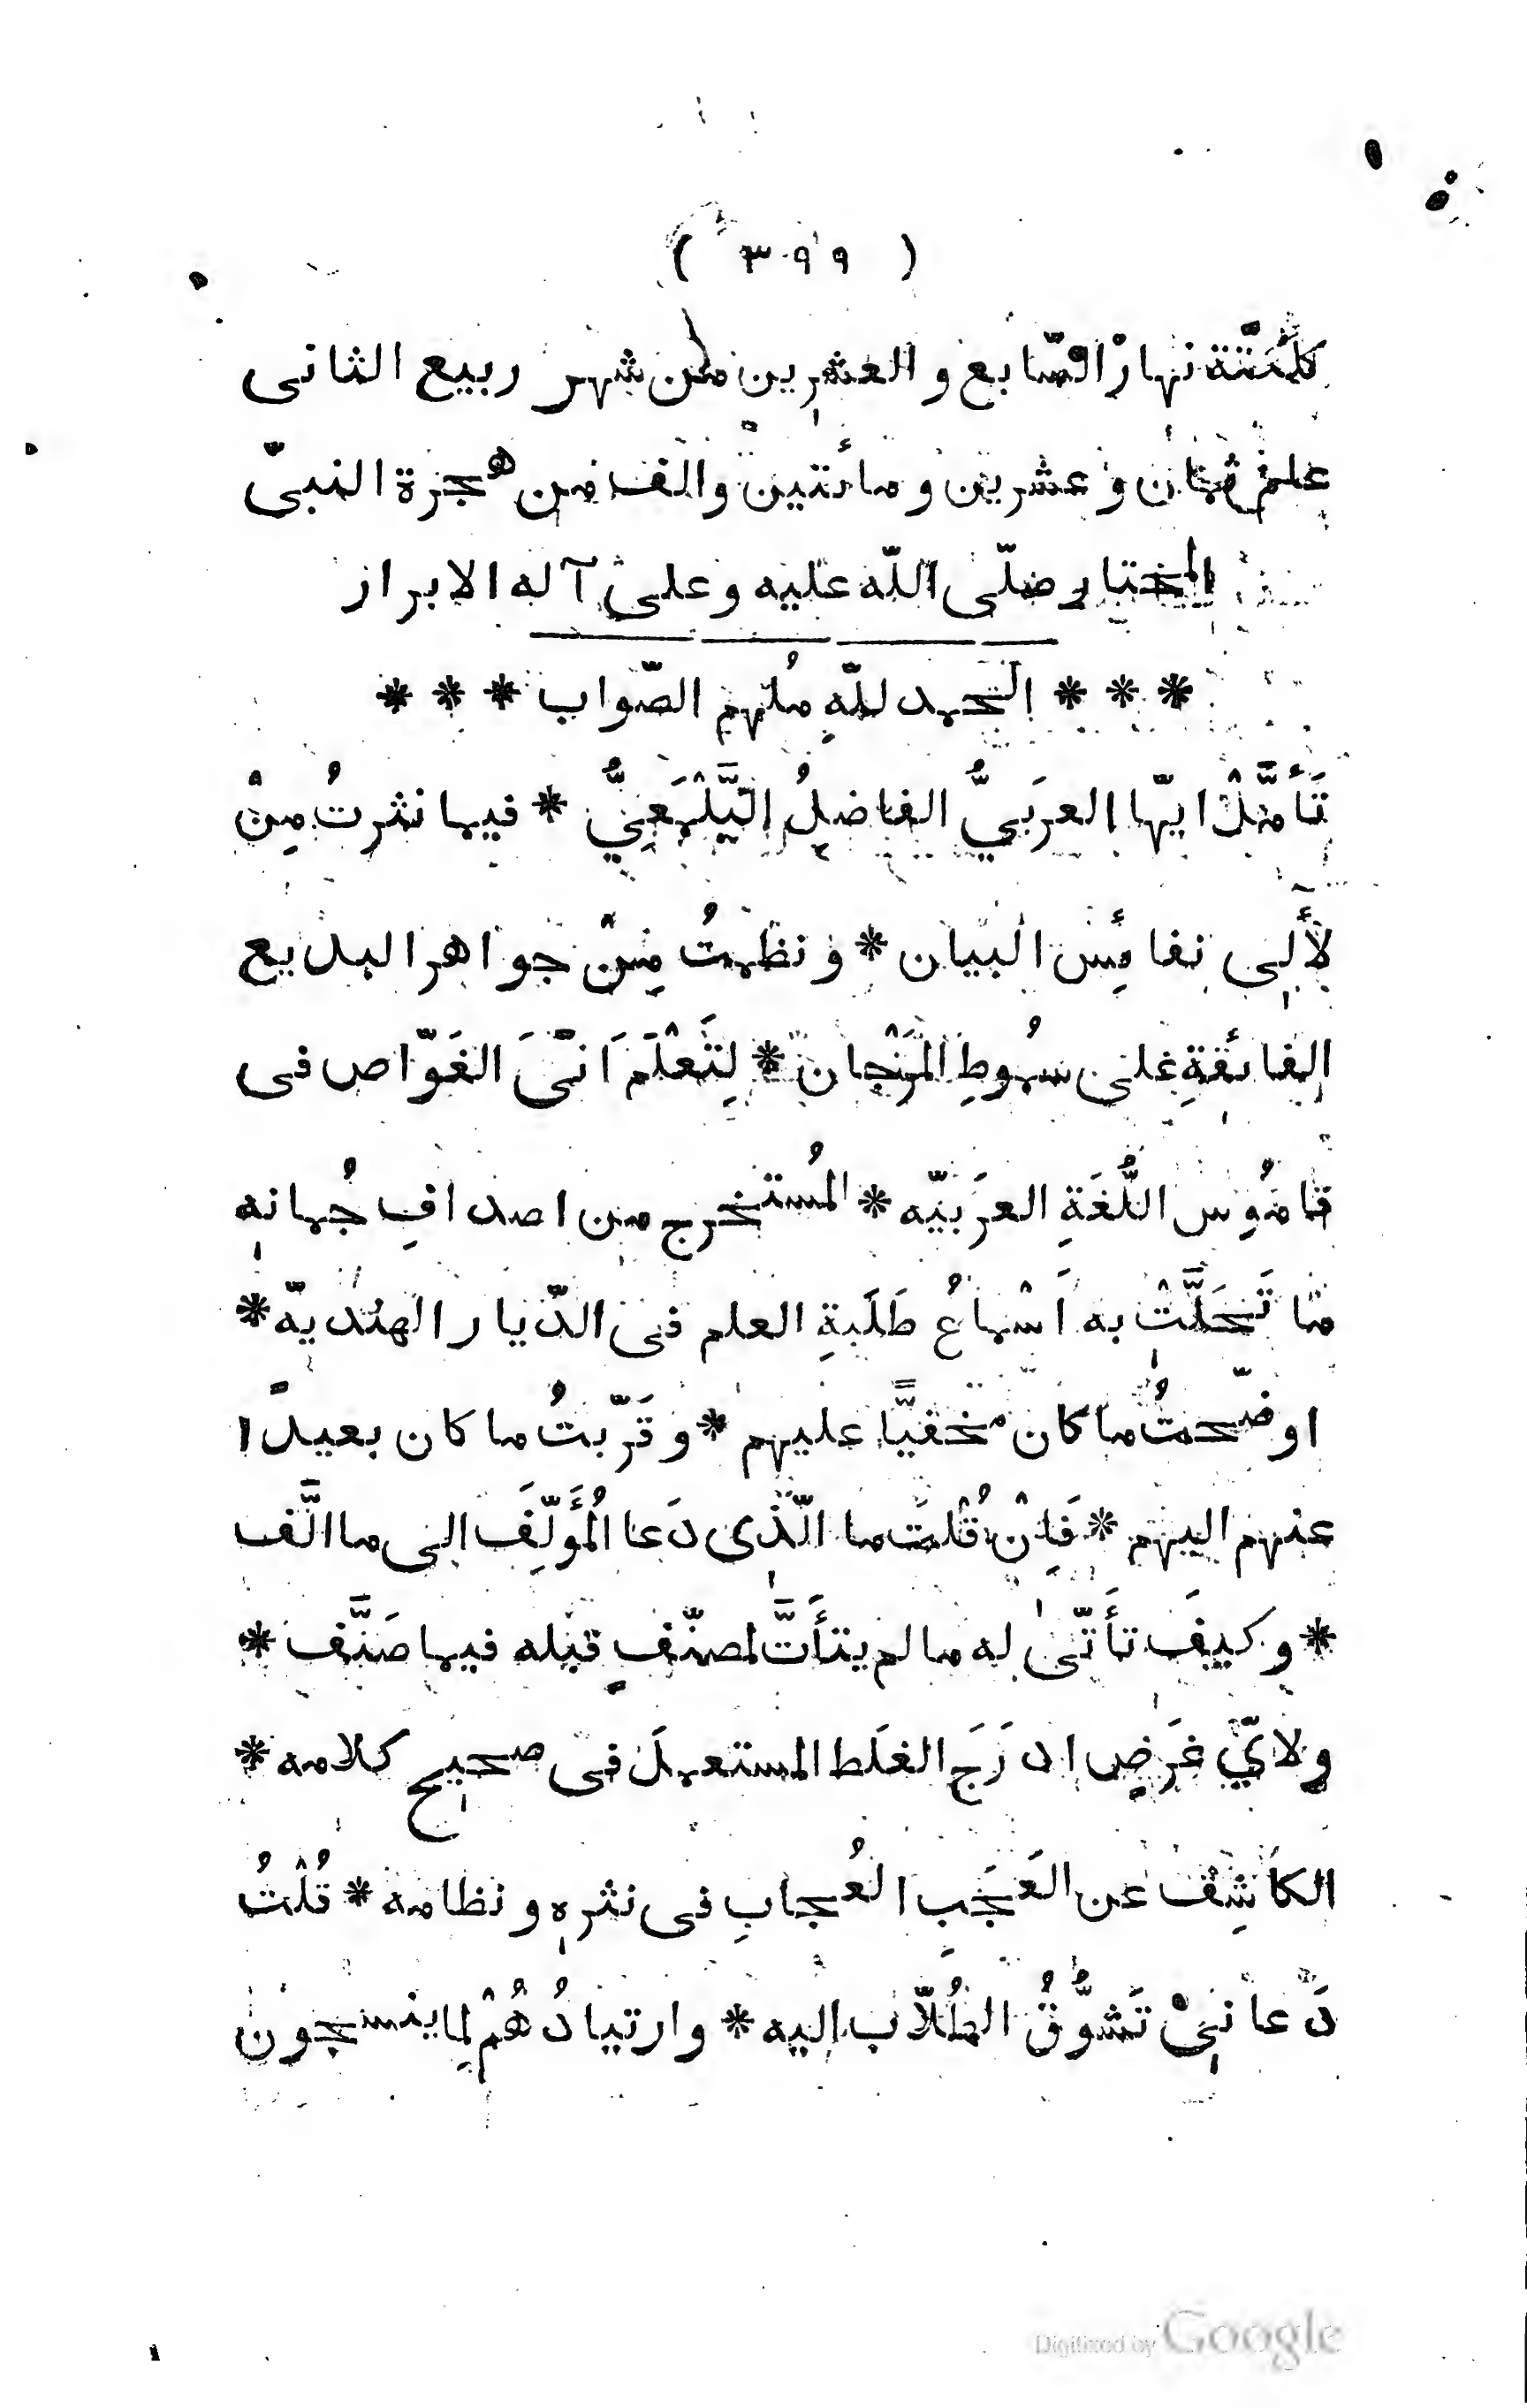 ( ٣٩٩ )
كلكتّة نهار السّابع والعشرين من شهر ربيع الثانى
عام ثمان وعشرين ومائتين والف من هجرة النبىّ
المختار صلّى اللّه عليه وعلى آله الابرار
* * * الحمد للّهِ مُلهم الصّواب * * *
تَأمَّلْ ايّها العرَبيُّ الفاضلُ اليَّلْمَعِيُّ * فيما نثرتُ مِنْ
لأٓلِى نفائِس البيان * ونظمتُ مِنْ جواهر البديع
الفائقةِ على سُموطِ المَرْجان * لِتَعْلَمَ اَنّىَ الغَوّاص فى
قامُوس اللُّغَةِ العرَبيّه * المُستخرج من اصدافِ جُمانه
ما تَحَلَّتْ به اَسْماعُ طَلَبةِ العلم فى الدّيار الهنديّه *
اوضّحتُ ما كان مخفيًّا عليهم * وقَرّبتُ ما كان بعيدًا
عنهم اليهم * فَاِنْ قُلْتَ ما الّذى دَعا المُؤَلِّفَ الى ما الَّف
* وكيفَ تأَتّىٰ له ما لم يتأَتَّ لمصنّفٍ قبله فيما صَنَّف *
ولايّ غَرَضٍ ادرَجَ الغلَط المستعملَ فى صحيح كلامه *
الكاشِفُ عن العَجَب العُجابِ فى نثرهٖ ونظامه * قُلْتُ
دَعانىْ تَشَوُّقُ الطُلّاب اليه * وارتيادُهُمْ لِما ينسجون
Digitized by Google